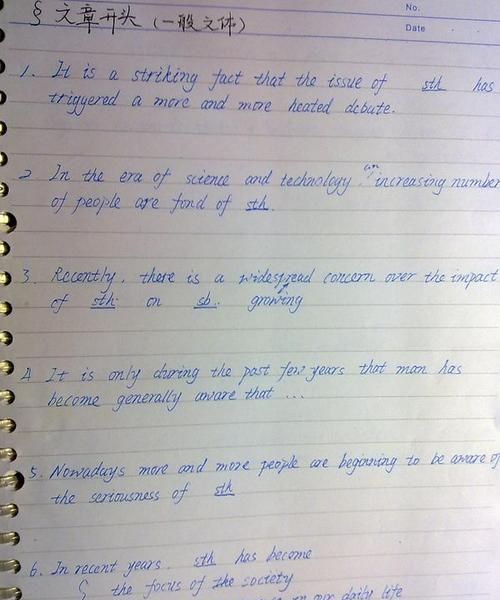 No.
Date
§ 文章开头 (一般文体)
1. It is a striking fact that the issue of sth has
triggered a more and more heated debate.
2 In the era of science and technology, an increasing number
of people are fond of sth.
3. Recently, there is a widespread concern over the impact
of sth on sb. growing
4 It is only during the past few years that man has
become generally aware that ...
5. Nowadays more and more people are beginning to be aware of
the seriousness of sth
6. In recent years. sth has become
{ the focus of the society
in our daily life